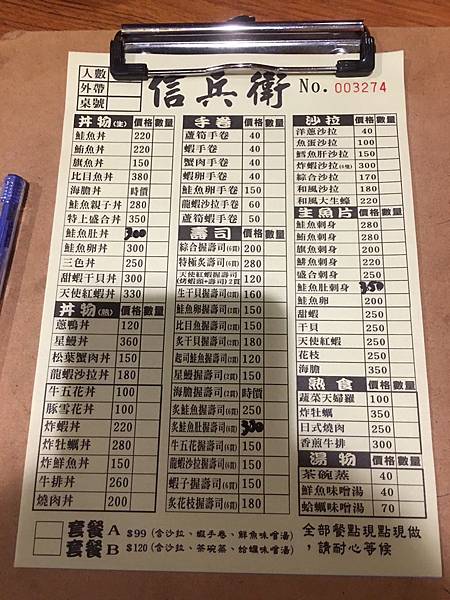 人數
外帶
桌號
信兵衛 No. 003274
丼物(生) 價格 數量
鮭魚丼 220
鮪魚丼 220
旗魚丼 150
比目魚丼 380
海膽丼 時價
鮭魚親子丼 280
特上盛合丼 350
鮭魚肚丼 300
鮭魚卵丼 300
三色丼 250
甜蝦干貝丼 300
天使紅蝦丼 330
丼物(熟) 價格 數量
蔥鴨丼 120
星鰻丼 360
松葉蟹肉丼 150
龍蝦沙拉丼 180
牛五花丼 100
豚雪花丼 100
炸蝦丼 220
炸牡蠣丼 280
炸鮮魚丼 150
牛排丼 260
燒肉丼 200
手卷 價格 數量
蘆筍手卷 40
蝦手卷 40
蟹肉手卷 40
蝦卵手卷 40
鮭魚卵手卷 150
龍蝦沙拉手卷 60
蘆筍蝦手卷 50
壽司 價格 數量
綜合握壽司(6貫) 200
特極炙壽司(6貫) 280
天使紅蝦握壽司
(烤蝦頭+壽司)2貫 120
生干貝握壽司(2貫) 160
鮭魚卵握壽司(2貫) 150
比目魚握壽司(2貫) 150
炙干貝握壽司(2貫) 150
起司鮭魚握壽司(2貫) 120
星鰻握壽司(2貫) 150
海膽握壽司(2貫) 時價
炙鮭魚握壽司(6貫) 250
炙鮭魚肚握壽司(6貫) 320
牛五花握壽司(6貫) 150
龍蝦沙拉握壽司(6貫) 150
蝦子握壽司(6貫) 180
炙花枝握壽司(6貫) 180
沙拉 價格 數量
洋蔥沙拉 40
魚蛋沙拉 100
鱈魚肝沙拉 150
炸蝦沙拉(5隻) 300
綜合沙拉 170
和風沙拉 180
和風大生蠔 220
生魚片 價格 數量
鮭魚刺身 250
鮪魚刺身 250
旗魚刺身 250
鯡魚刺身 250
盛合刺身 250
鮭魚肚刺身 350
鮭魚卵 250
甜蝦 250
干貝 250
天使紅蝦 250
花枝 250
海膽 350
熟食 價格 數量
蔬菜天婦羅 100
炸牡蠣 350
日式燒肉 250
香煎牛排 300
湯物 價格 數量
茶碗蒸 40
鮮魚味噌湯 40
蛤蠣味噌湯 70
套餐A $99(含沙拉、蝦手卷、鮮魚味噌湯)
套餐B $120(含沙拉、茶碗蒸、蛤蠣味噌湯)
全部餐點現點現做
,請耐心等候